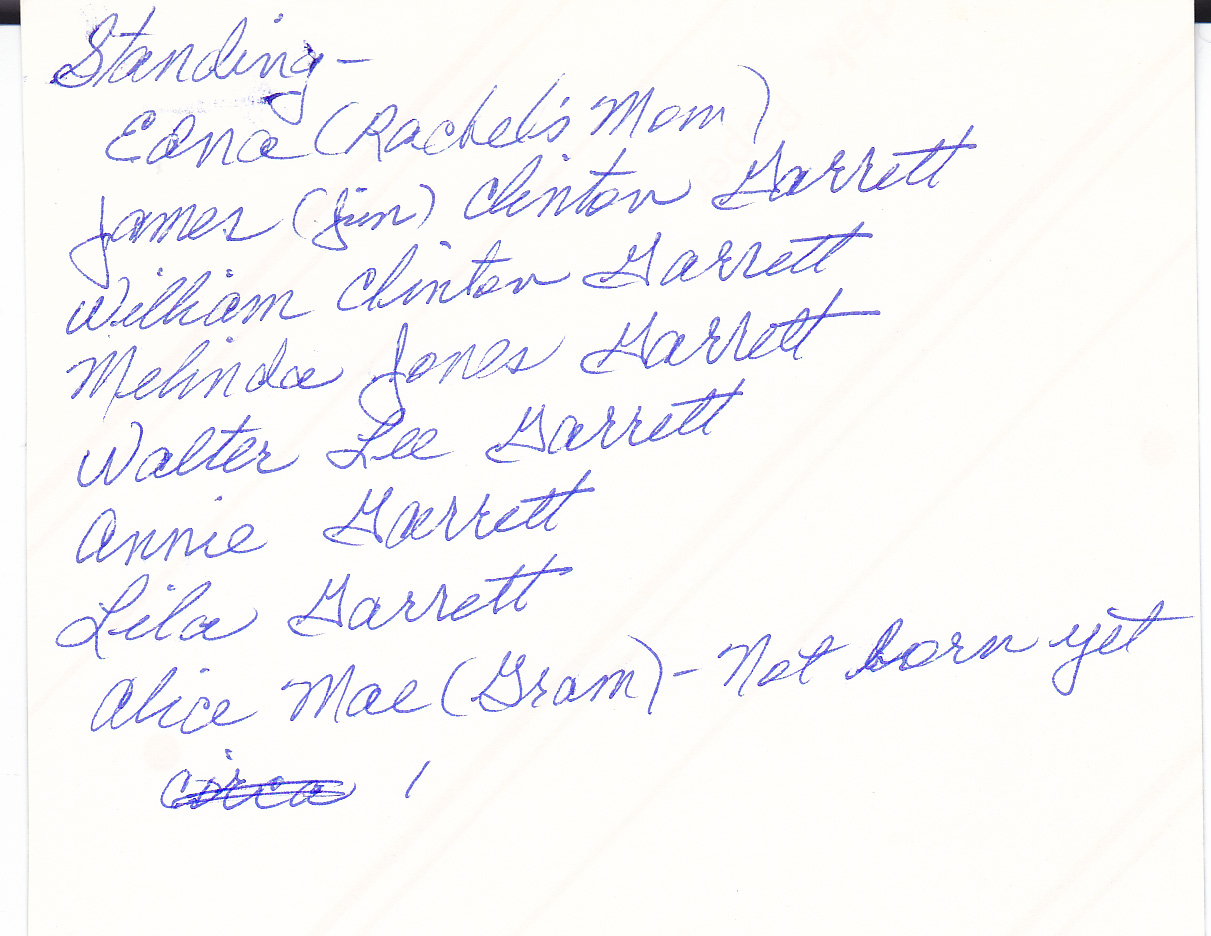 Standing-
Edna (Rachel's Mom)
James (Jim) Clinton Garrett
William Clinton Garrett
Melinda Jones Garrett
Walter Lee Garrett
Annie Garrett
Lila Garrett
Alice Mae (Gram) - Not born yet
circa 1